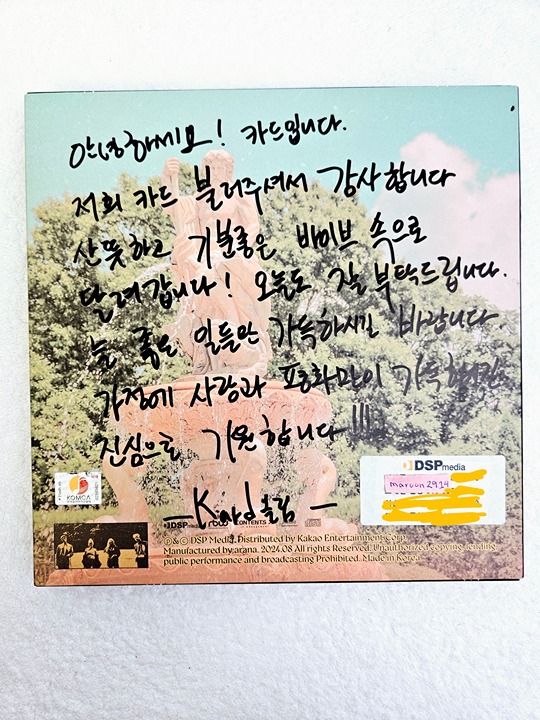 안녕하세요! 카드입니다.
저희 카드 불러주셔서 감사합니다
산뜻하고 기분좋은 바이브 속으로
달려갑니다! 오늘도 잘 부탁드립니다.
늘 좋은 일들만 가득하시길 바랍니다.
가정에 사랑과 평화만이 가득하시길
진심으로 기원합니다!!!
- Kard 올림 -
KOMCA
DSPmedia
maroon2914
DSPmedia
CONTENTS
℗ & © DSP Media. Distributed by Kakao Entertainment Corp.
Manufactured by arana. 2024.08 All rights Reserved. Unauthorized copying, lending
public performance and broadcasting Prohibited. Made in Korea